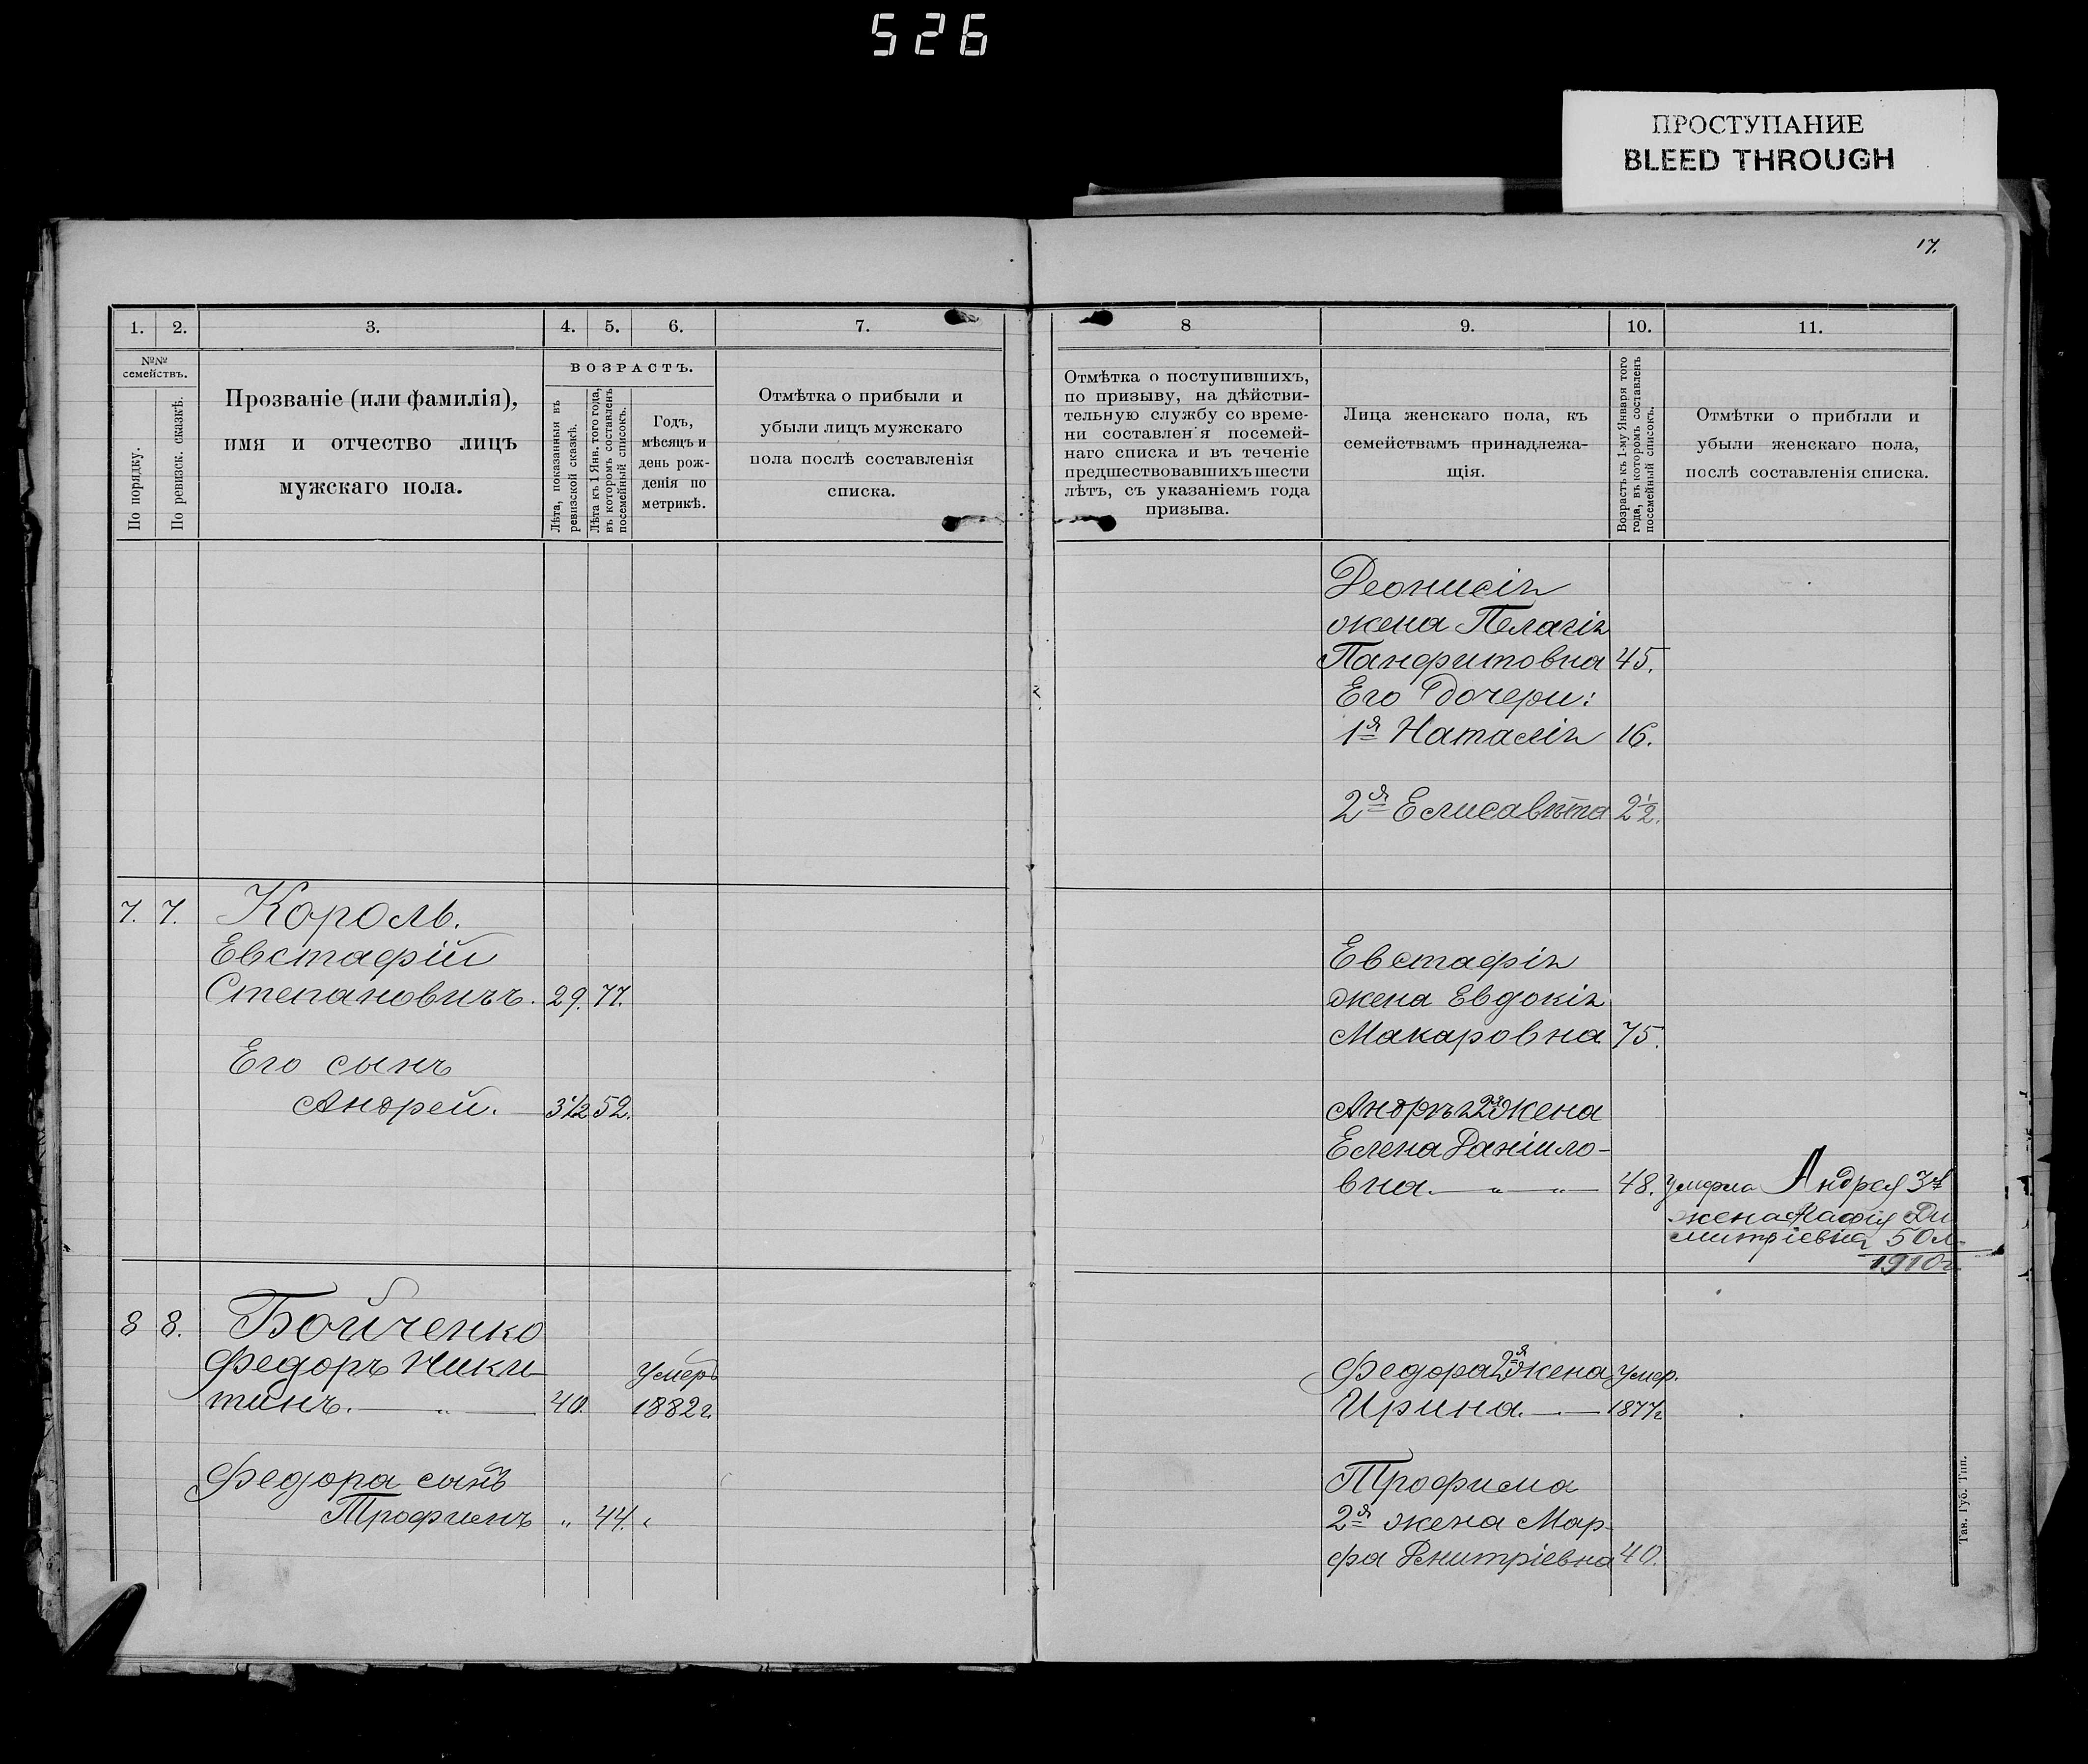 526
ПРОСТУПАНИЕ
BLEED THROUGH
17.
1.
2.
3.
4.
5.
6.
7.
№№ семействъ.
По порядку.
По ревизск. сказкѣ.
Прозваніе (или фамилія),
имя и отчество лицъ
мужскаго пола.
ВОЗРАСТЪ.
Лѣта, показанныя въ
ревизской сказкѣ.
Лѣта къ 1 Янв. того года,
въ которомъ составленъ
посемейный списокъ.
Годъ,
мѣсяцъ и
день рож-
денія по
метрикѣ.
Отмѣтка о прибыли и
убыли лицъ мужскаго
пола послѣ составленія
списка.
7. 7. Король.
Евстафій
Степановичъ. 29. 77.
Его сынъ
Андрей. 3½ 52.
8 8. Бойченко
Федоръ Ники-
тинъ. — „ — 40. Умеръ
1882 г.
Федора сынъ
Трофимъ „ 44. „
8
9.
10.
11.
Отмѣтка о поступившихъ,
по призыву, на дѣйстви-
тельную службу со време-
ни составленія посемей-
наго списка и въ теченіе
предшествовавшихъ шести
лѣтъ, съ указаніемъ года
призыва.
Лица женскаго пола, къ
семействамъ принадлежа-
щія.
Возрастъ къ 1-му Января того
года, въ которомъ составленъ
посемейный списокъ.
Отмѣтки о прибыли и
убыли женскаго пола,
послѣ составленія списка.
Деонисія
жена Пелагія
Панфитовна 45.
Его дочери:
1я Наталія 16.
2я Елисавѣта 2½.
Евстафія
жена Евдокія
Макаровна 75.
Андрѣя 2я жена
Елена Даніило-
вна. — „ — „ — 48. умерла Андрея 3я
жена Ди
митріевна 50 л.
1910 г.
Федора 2я жена умер.
Ирина. — 1877 г
Трофима
2я жена Мар-
фа Дмитріевна 40.
Тав. Губ. Тип.